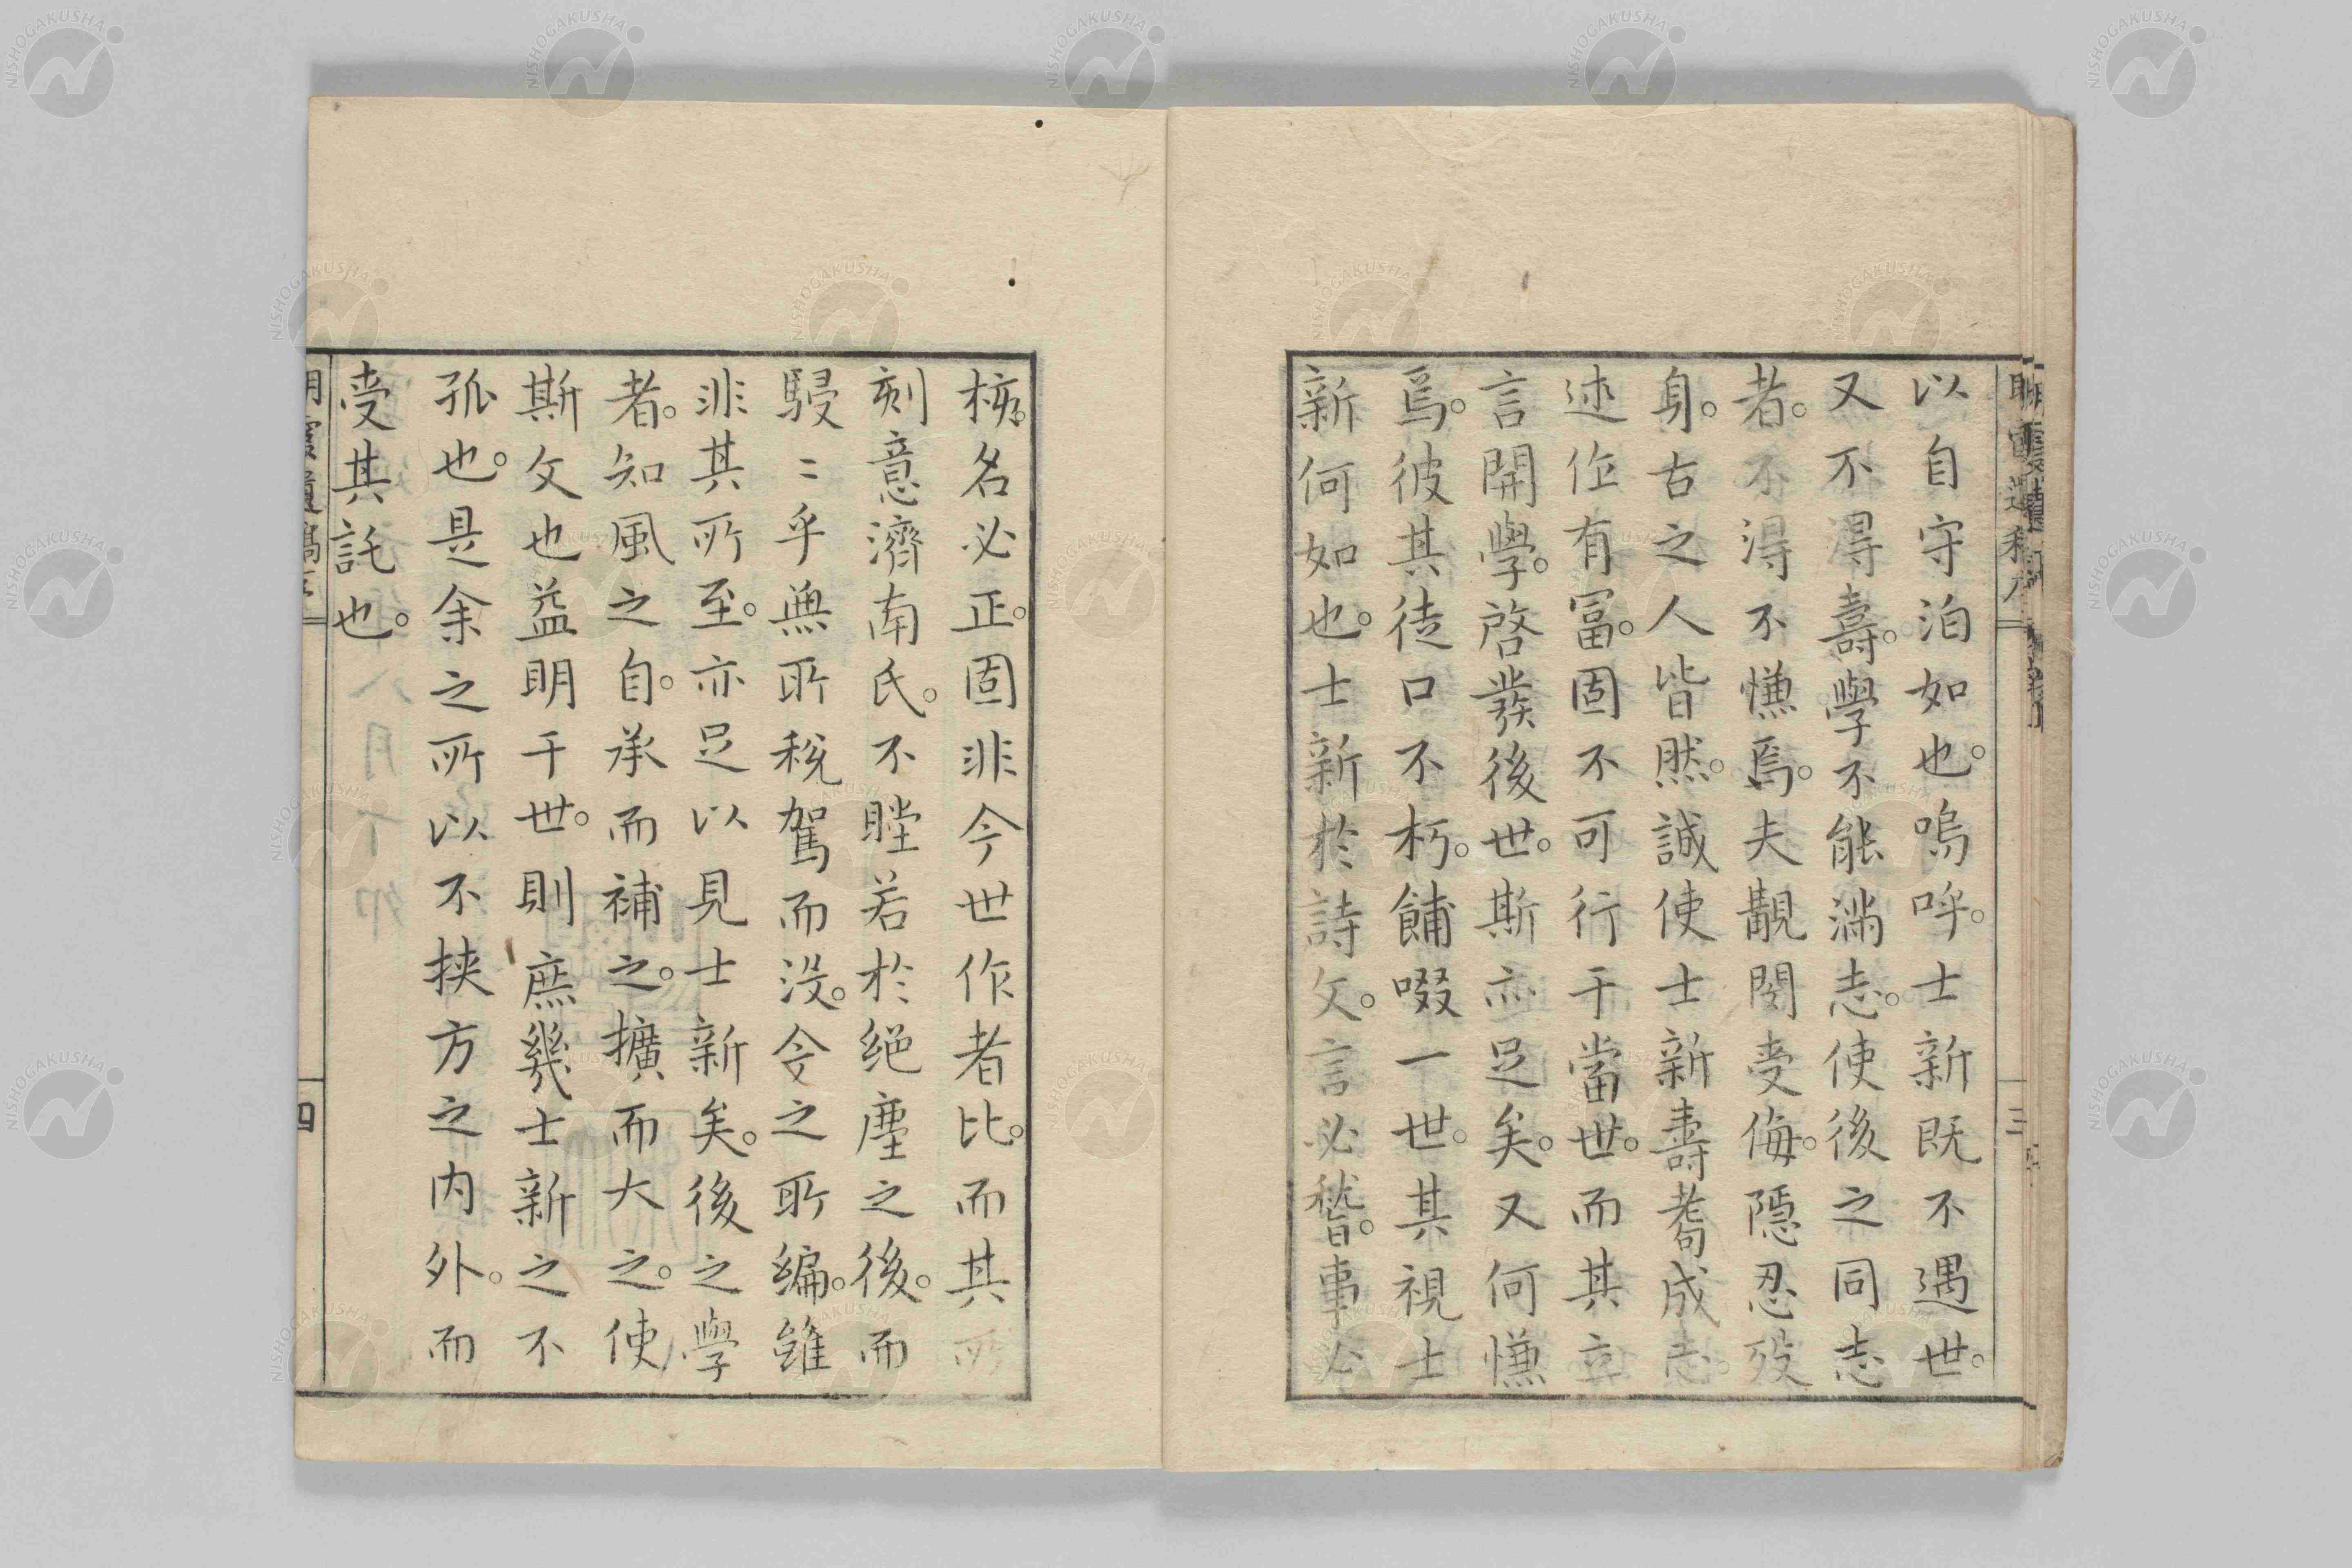 以自守泊如也。嗚呼。士新既不遇世。
又不得壽。學不能滿志。使後之同志
者。不得不慊焉。夫覯閔受侮。隱忍歿
身。古之人皆然。誠使士新壽耉成志。
述作有冨。固不可行于當世。而其立
言開學。啓發後世。斯亦足矣。又何慊
焉。彼其徒口不朽。餔啜一世。其視士
新何如也。士新於詩文。言必稽。事必
核。名必正。固非今世作者比。而其所
刻意濟南氏。不瞠若於絕塵之後。而
駸〻乎無所稅駕而没。今之所編。雖
非其所至。亦足以見士新矣。後之學
者。知風之自。承而補之。擴而大之。使
斯文也益明于世。則庶幾士新之不
孤也。是余之所以不挾方之内外。而
受其託也。
三
四
NISHOGAKUSHA